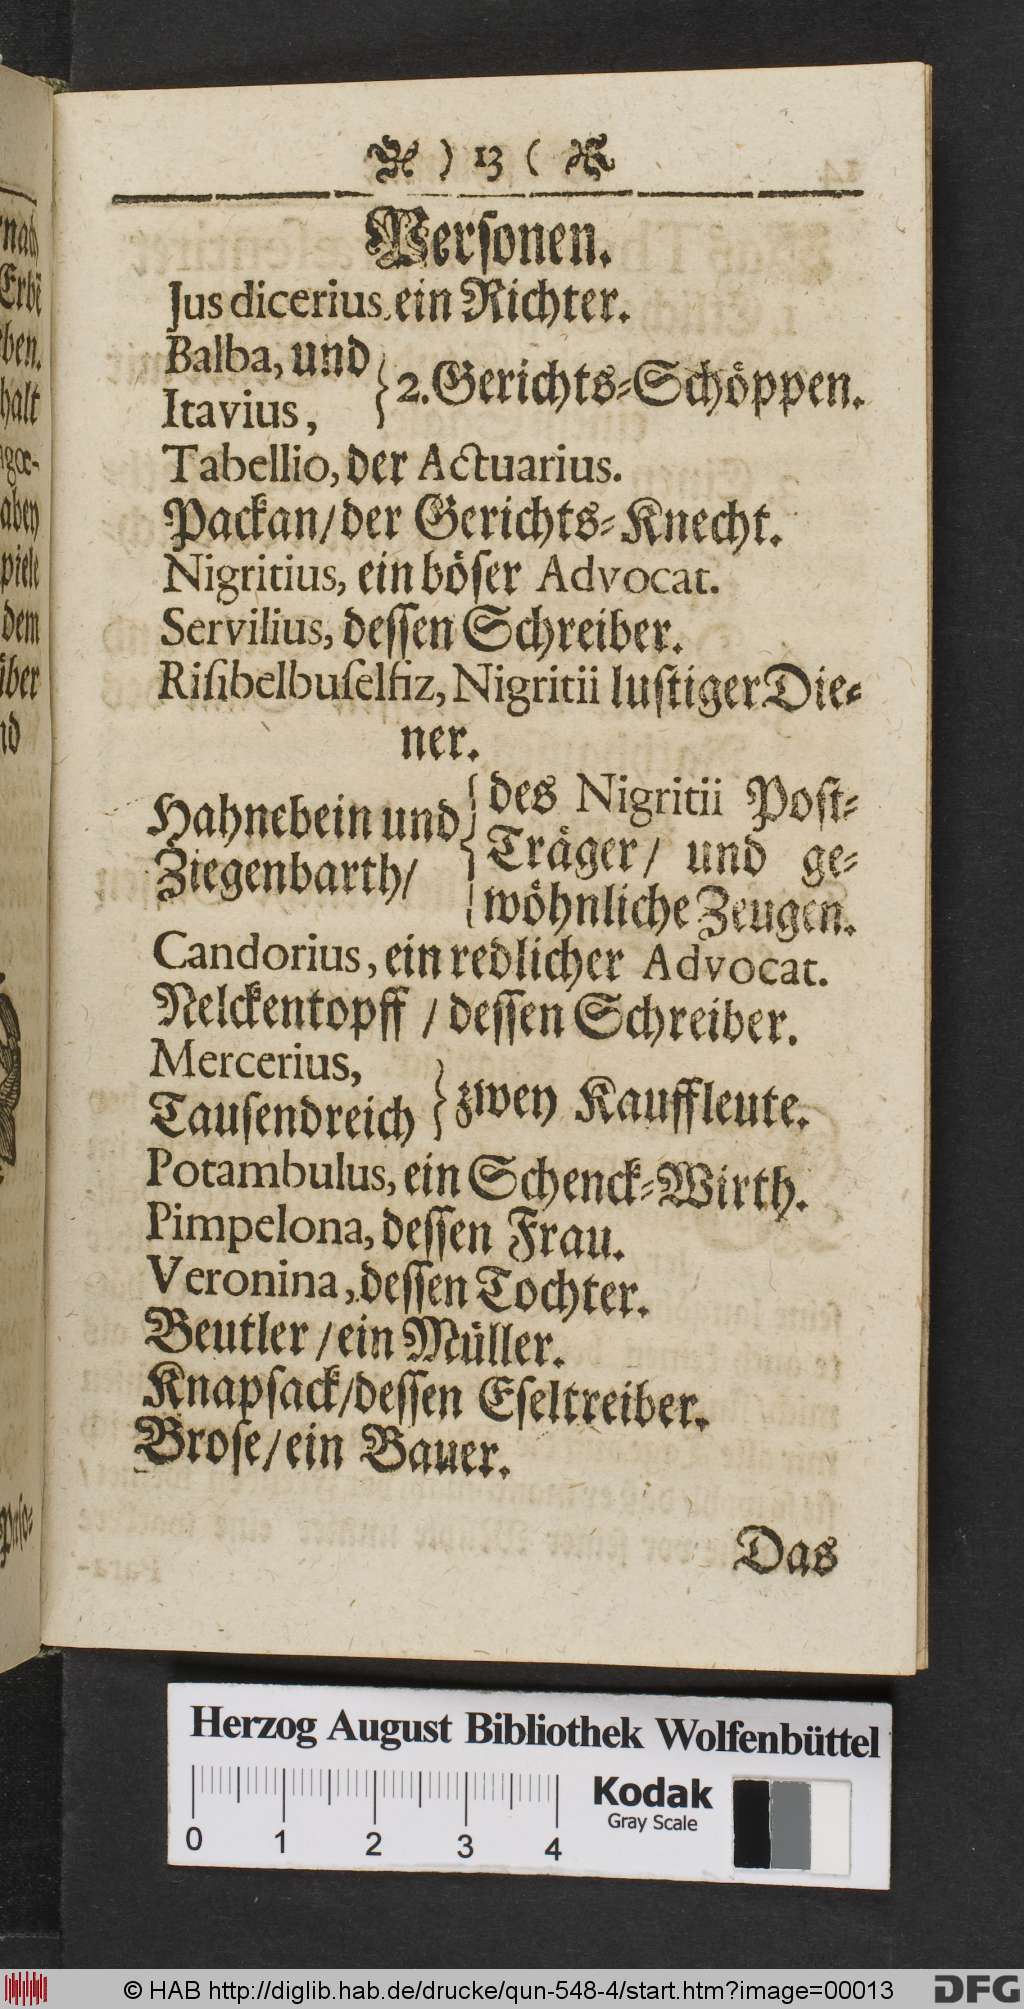 ) 13 (
Personen.
Jus dicerius, ein Richter.
Balba, und
Itavius,
} 2. Gerichts-Schöppen.
Tabellio, der Actuarius.
Packan/ der Gerichts-Knecht.
Nigritius, ein böser Advocat.
Servilius, dessen Schreiber.
Risibelbuselfiz, Nigritii lustiger Die-
ner.
Hahnebein und
Ziegenbarth/
{ des Nigritii Post-
Träger/ und ge-
wöhnliche Zeugen.
Candorius, ein redlicher Advocat.
Nelckentopff / dessen Schreiber.
Mercerius,
Tausendreich
} zwey Kauffleute.
Potambulus, ein Schenck-Wirth.
Pimpelona, dessen Frau.
Veronina, dessen Tochter.
Beutler / ein Müller.
Knapsack/ dessen Eseltreiber.
Brose/ ein Bauer.
Das
Herzog August Bibliothek Wolfenbüttel
Kodak
Gray Scale
0 1 2 3 4
© HAB http://diglib.hab.de/drucke/qun-548-4/start.htm?image=00013
DFG